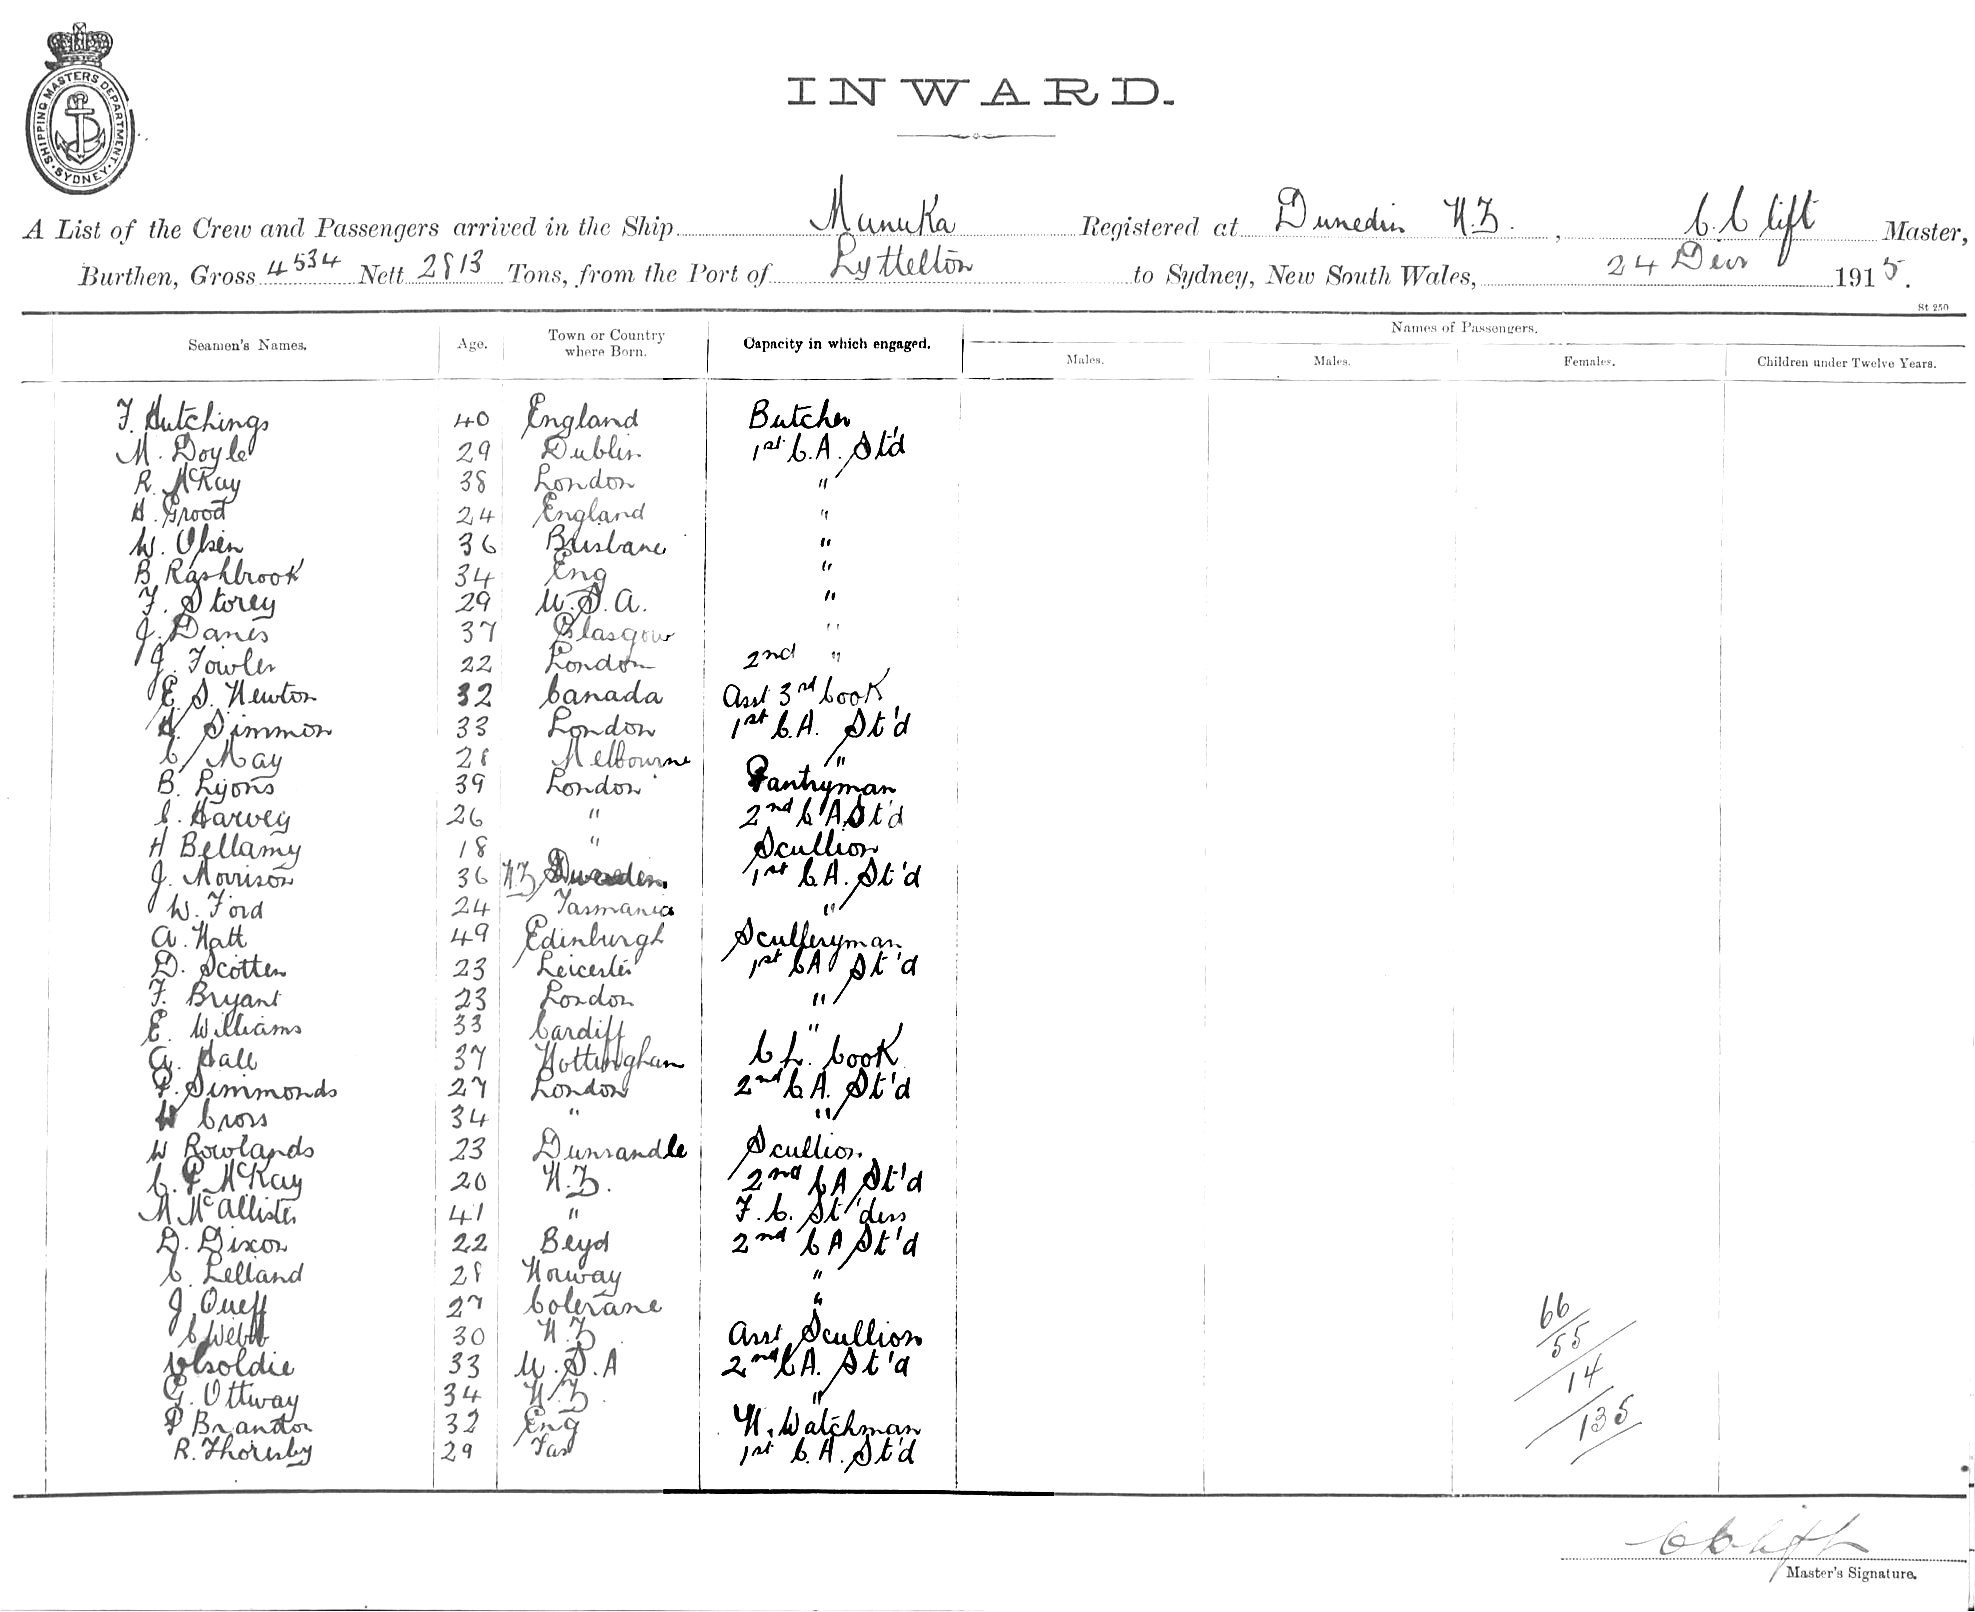 SHIPPING MASTERS DEPARTMENT · SYDNEY ·
INWARD.
A List of the Crew and Passengers arrived in the Ship Manuka Registered at Dunedin N.Z. , C. Clift Master,
Burthen, Gross 4534 Nett 2813 Tons, from the Port of Lyttelton to Sydney, New South Wales, 24 Decr 1915.
St 250
Seamen's Names. Age. Town or Country where Born. Capacity in which engaged. Names of Passengers.
Males. Males. Females. Children under Twelve Years.
F. Hutchings 40 England Butcher
M. Doyle 29 Dublin 1st C.A. St'd
R. McKay 38 London "
H. Grood 24 England "
W. Olsen 36 Brisbane "
B Rashbrook 34 Eng "
F. Storey 29 U.S.A. "
J. Danes 37 Glasgow "
J. Fowler 22 London 2nd "
E. S. Newton 32 Canada Asst 3rd Cook
H. Simmon 33 London 1st C.A. St'd
C. May 28 Melbourne "
B. Lyons 39 London Pantryman
C. Harvey 26 " 2nd C A St'd
H Bellamy 18 " Scullion
J. Morrison 36 N.Z. Dunedin 1st C A. St'd
W. Ford 24 Tasmania "
A. Watt 49 Edinburgh Sculleryman
D. Scotten 23 Leicester 1st C A St'd
F. Bryant 23 London "
E. Williams 33 Cardiff "
A. Hall 37 Nottingham C L. Cook
P. Simmonds 27 London 2nd C A. St'd
W Cross 34 " "
W Rowlands 23 Dunsandle Scullion
C. P McKay 20 N.Z. 2nd C A St'd
M McAllister 41 " F. C. St'dess
D. Dixon 22 2nd C A St'd
C. Lelland 28 Norway "
J. 27 Colerane "
C Webb 30 N.Z. Asst Scullion
33 U.S.A 2nd C A. St'd
G. Ottway 34 N.Z. "
P Brandon 32 Eng N. Watchman
R. Thoresby 29 Tas 1st C. A. St'd
66
55
14
135
C Clift
Master's Signature.